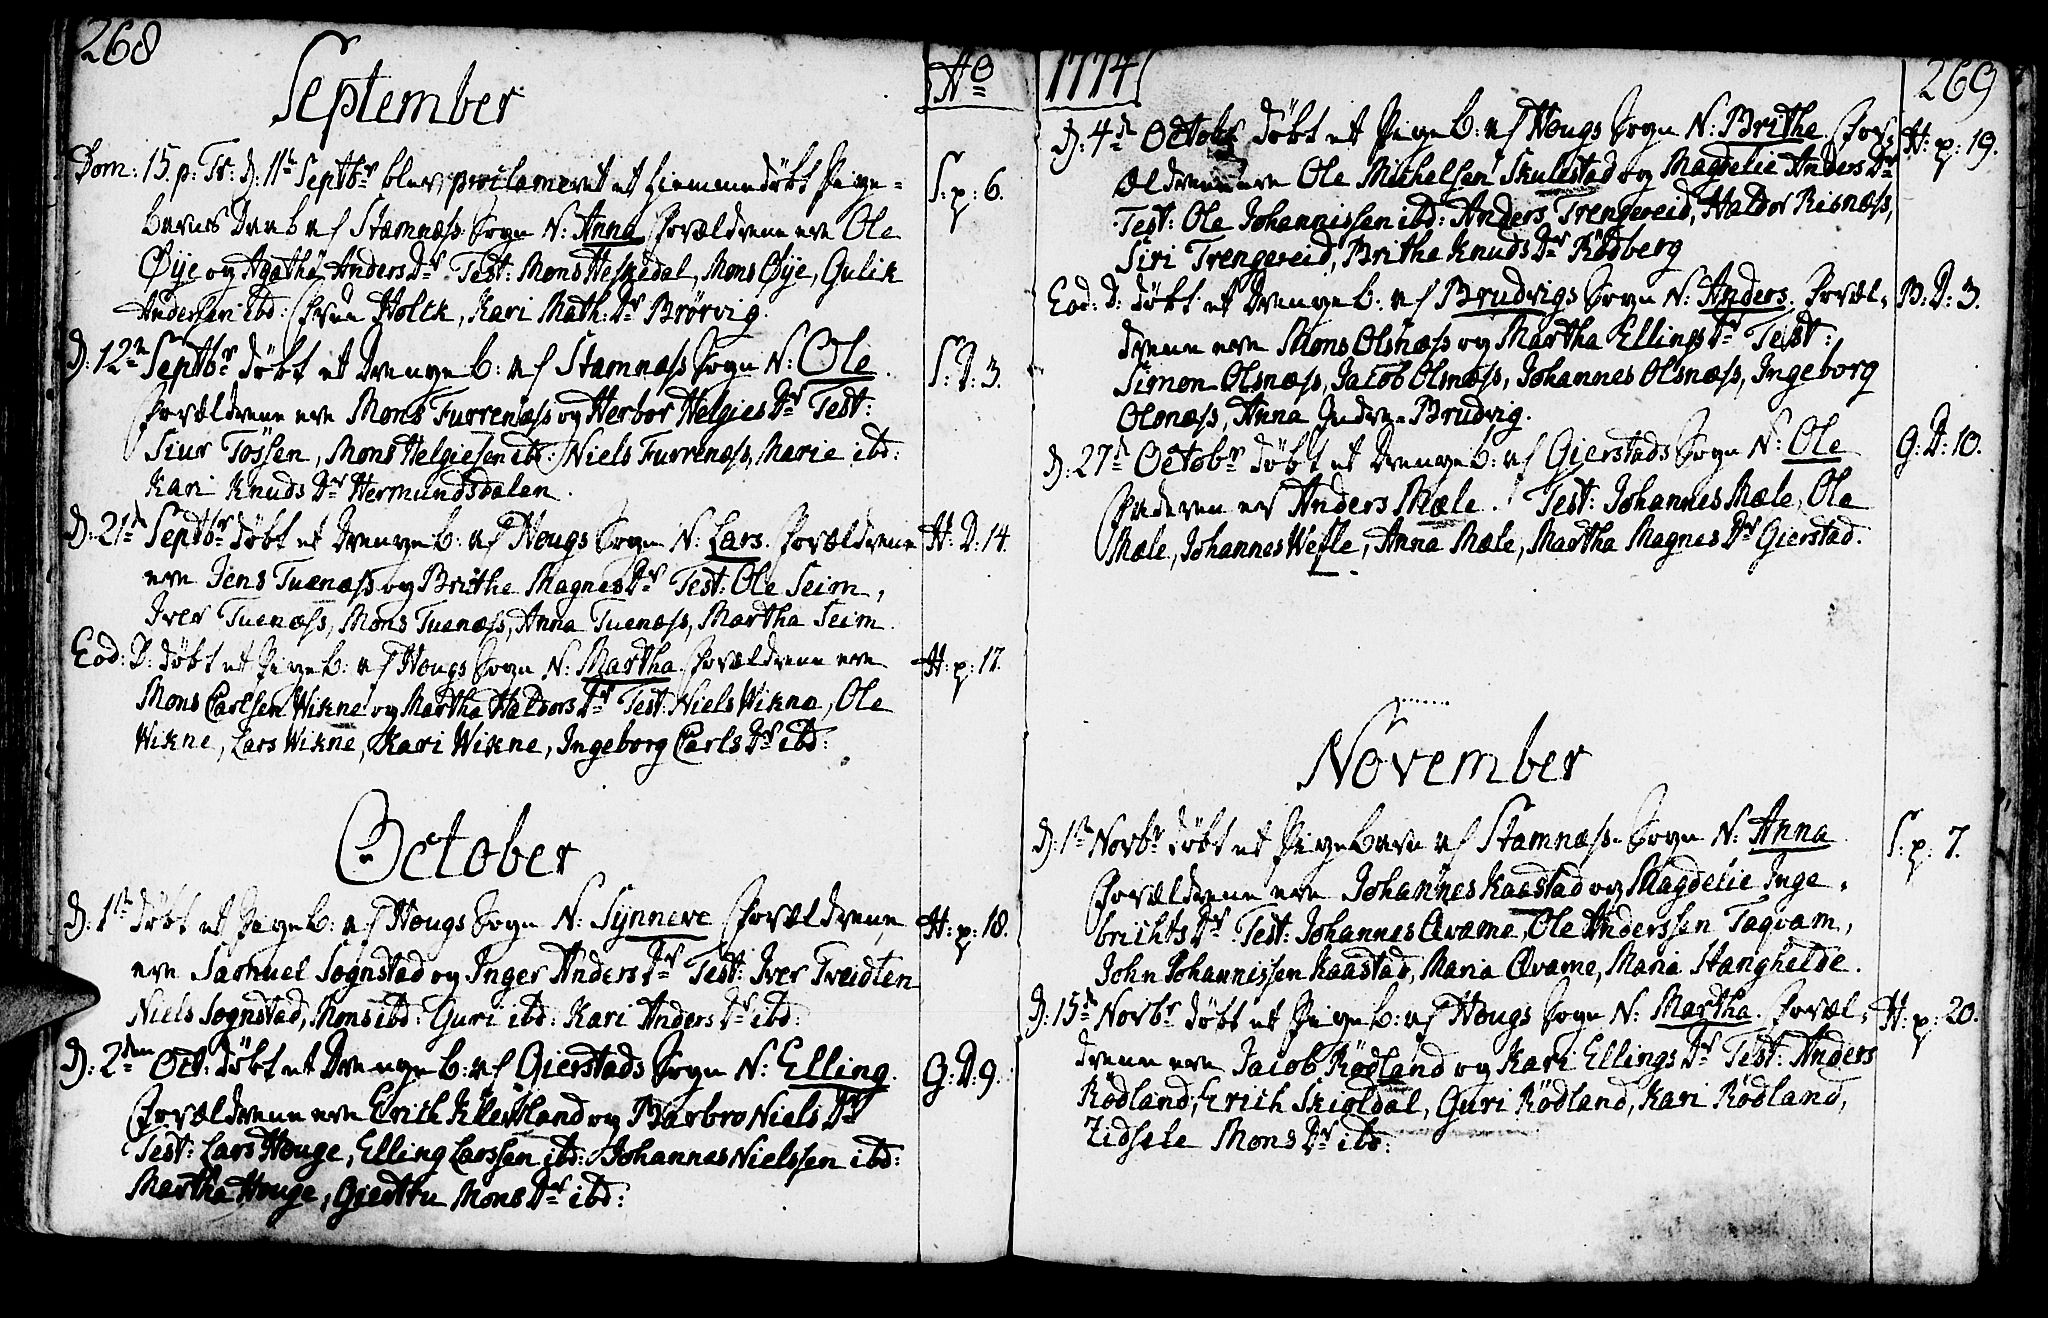 268
September
Ao
Dom: 15. p. Tr: D. 11te Septbr blev proclameret et hiemmedöbt Pige-
S: p: 6.
barns Daab af Stamnæss Sogn N: Anna Forældrene ere Ole
Øye og Agathe Anders Dr Test: Mons Heskedal, Mons Øye, Gulik
Anderssen ibd: Frue Holck, Kari Math: Dr Brørvig.
D: 12te Septbr döbt et Drenge b: af Stamnæss Sogn N: Ole.
S: D: 3.
Forældrene ere Mons Furrenæss og Herbor Helgies Dr Test:
Siur Tössen, Mons Helgiesen ibd: Niels Furrenæss, Marie ibd:
Kari Knuds Dr Hermundsdalen.
D: 21de Septbr döbt et Drenge b: af Hougs Sogn N: Lars. Forældrene
H: D: 14.
ere Jens Tuenæss og Brithe Magnes Dr Test: Ole Seim,
Iver Tuenæss, Mons Tuenæss, Anna Tuenæss, Martha Seim.
Eod: D: döbt et Pige b: af Hougs Sogn N: Martha. Forældrene ere
H: p: 17.
Mons Carlsen Wikne og Martha Haldors Dr Test: Niels Wikna, Ole
Wikne, Lars Wikne, Kari Wikne, Ingeborg Carls Dr ibd:
October
D: 1te döbt et Pige b: af Hougs Sogn N: Synneve Forældrene
H: p: 18.
ere Samuel Sognstad og Inger Anders Dr Test: Iver Tveidten
Niels Sognstad, Mons ibd: Guri ibd: Kari Anders Dr ibd:
D: 2den Oct: döbt et Drenge b: af Gierstads Sogn N: Elling.
G: D: 9.
Forældrene ere Erich Kleveland og Barbro Niels Dr
Test: Lars Houge, Elling Larssen ibd: Johannes Nielssen ibd:
Martha Houge, Giertru Mons Dr ibd:
1774
269
D: 4de Octobr döbt et Pige b: af Hougs Sogn N: Brithe. For,
H: p: 19.
ældrene ere Ole Michelsen Skulstad og Magdelie Anders Dr
Test: Ole Johannissen ibd: Anders Trengereid, Haldor Risnæss,
Siri Trengereid, Brithe Knuds Dr Rödberg
Eod: D: döbt et Drenge b: af Brudvigs Sogn N: Anders. Foræl,
B: D: 3.
drene ere Mons Olsnæss og Martha Ellings Dr Test:
Simon Olsnæss, Jacob Olsnæss, Johannes Olsnæss, Ingeborg
Olsnæss, Anna Indre-Brudvig.
D: 27de Octobr döbt et Drenge b: af Gierstads Sogn N: Ole
G: D: 10.
Faderen er Anders Mæle. Test: Johannes Mæle, Ole
Mæle, Johannes Wefle, Anna Mæle, Martha Magnes Dr Gierstad.
November
D: 1te Novbr döbt et Pigebarn af Stamnæss Sogn N: Anna
S: p: 7.
Forældrene ere Johannes Kaastad og Magdelie Inge,
brichts Dr Test: Johannes Qvame, Ole Anderssen Taqvam,
John Johannissen Kaastad, Maria Qvame, Maria Stanghelde.
D: 15de Novbr döbt et Pige b: af Hougs Sogn N: Martha. Foræl,
H: p: 20.
drene ere Jacob Rödland og Kari Ellings Dr Test: Anders
Rödland, Erich Skioldal, Guri Rödland, Kari Rödland,
Zidsele Mons Dr ibd: